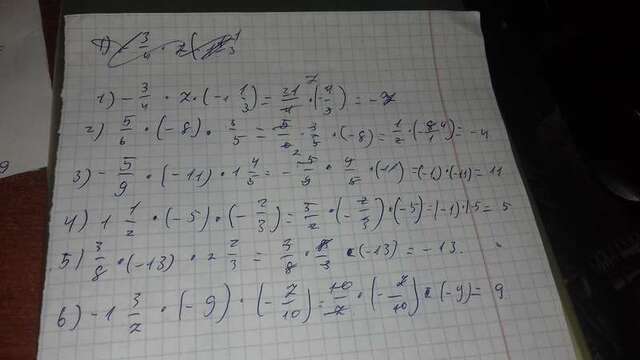 1) - 3/4 · 7 · (-1 1/3) = 21/4 · (4/3) = - 7
2) 5/6 · (-8) · 3/5 = 5/6 · 3/5 · (-8) = 1/2 · (-8/1) = -4
3) - 5/9 · (-11) · 1 4/5 = - 5/9 · 9/5 · (-11) = (-1) · (-11) = 11
4) 1 1/2 · (-5) · (- 2/3) = 3/2 · (- 2/3) · (-5) = (-1) · (-5) = 5
5) 3/8 · (-13) · 2 2/3 = 3/8 · 8/3 · (-13) = -13.
6) -1 3/7 · (-9) · (- 7/10) = 10/7 · (- 7/10) · (-9) = 9